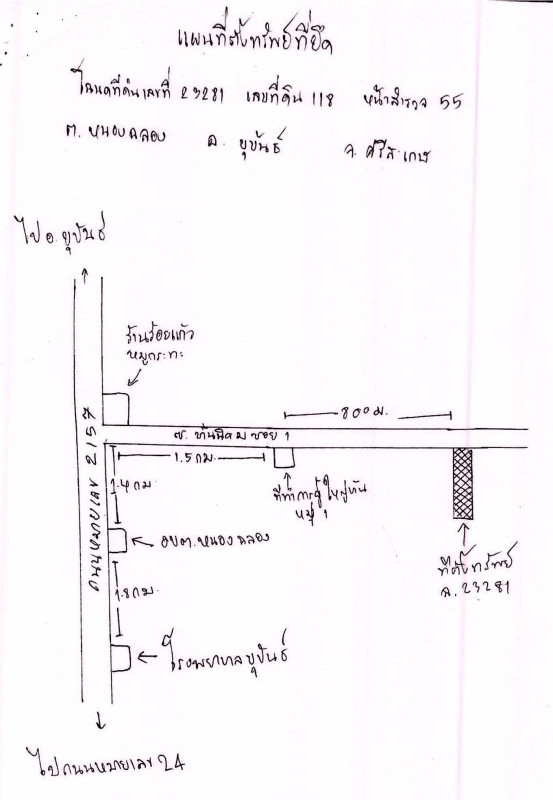 แผนที่ตั้งทรัพย์ที่ยึด
โฉนดที่ดินเลขที่ 23281 เลขที่ดิน 118 หน้าสำรวจ 55
ต. หนองฉลอง อ. ขุขันธ์ จ. ศรีสะเกษ
ไป อ. ขุขันธ์
ร้านร้อยแก้ว
หมูกระทะ
800 ม.
ซ. บ้านนิคม ซอย 1
1.5 กม.
ถนนหมายเลข 2157
1.4 กม
ที่ทำการผู้ใหญ่บ้าน
หมู่ 1
อบต. หนองฉลอง
ที่ตั้งทรัพย์
ฉ. 23281
1.8 กม.
โรงพยาบาลขุขันธ์
ไปถนนหมายเลข 24